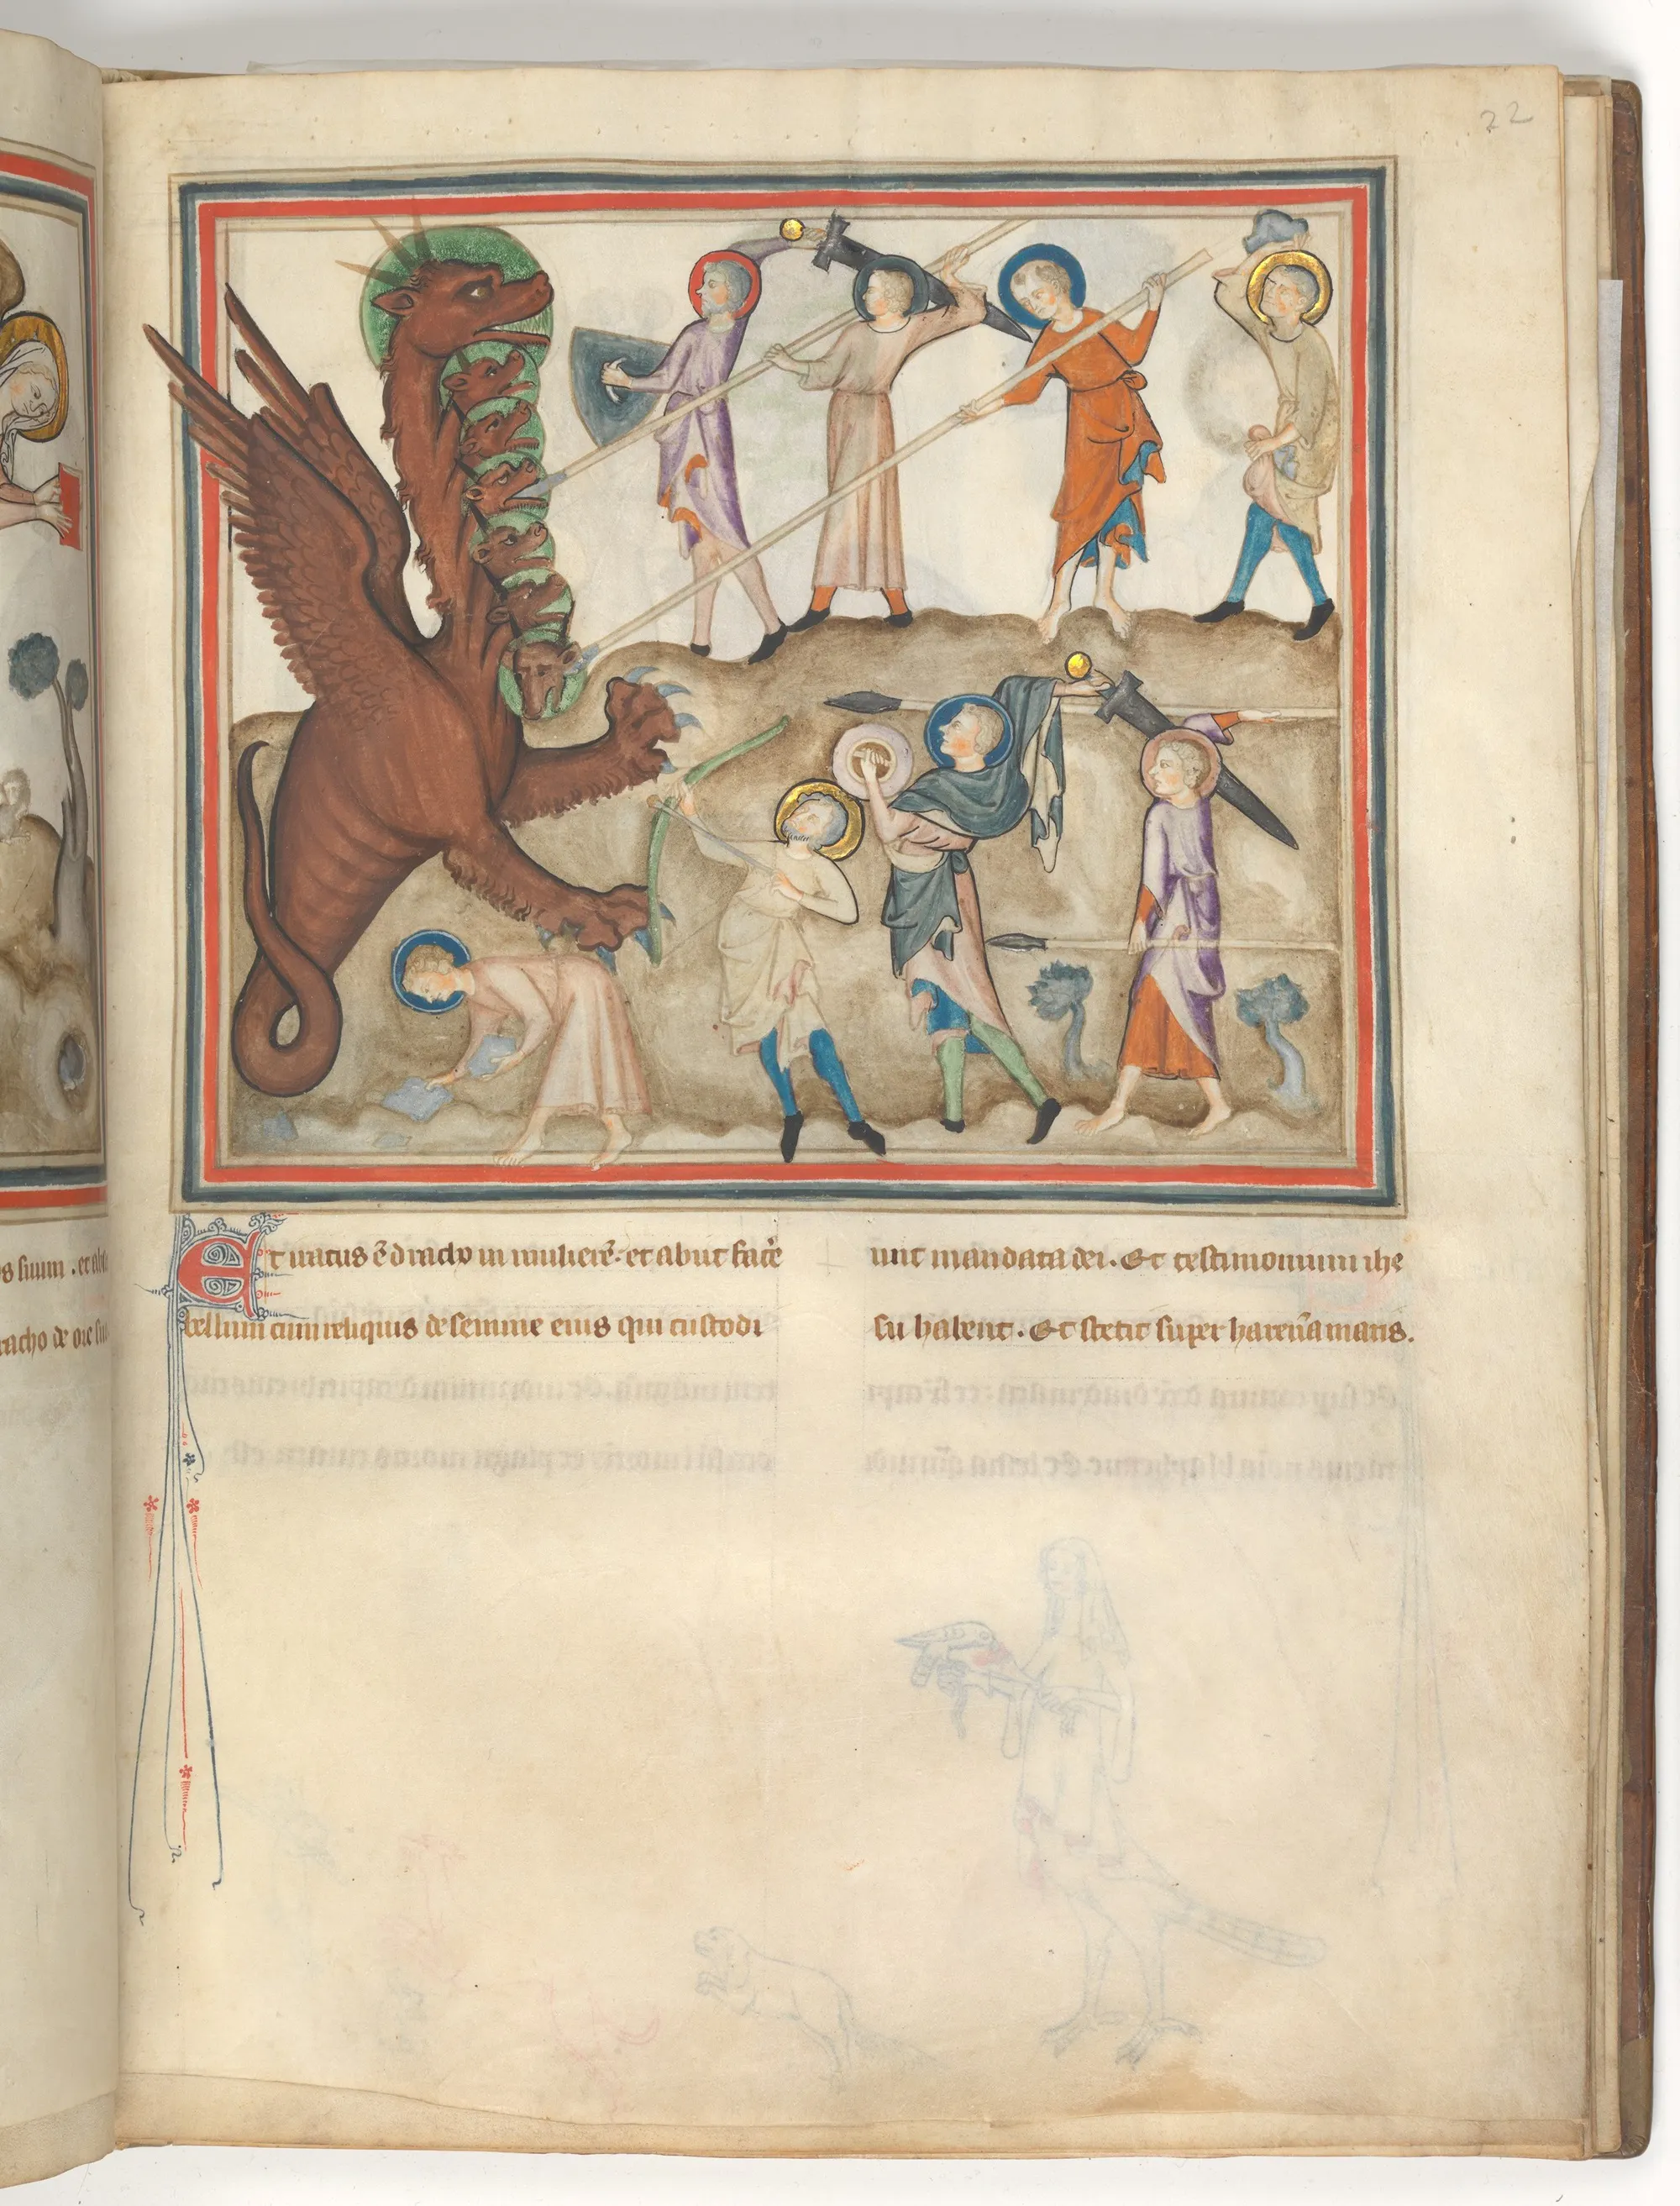 22
Et iratus ē draco in mulierē. et abiit facē
bellum cum reliquis de semine eius qui custodi
unt mandata dei. Et testimonium ihe
su habent. Et stetit super harenā maris.
s suum . et
racho de ore su